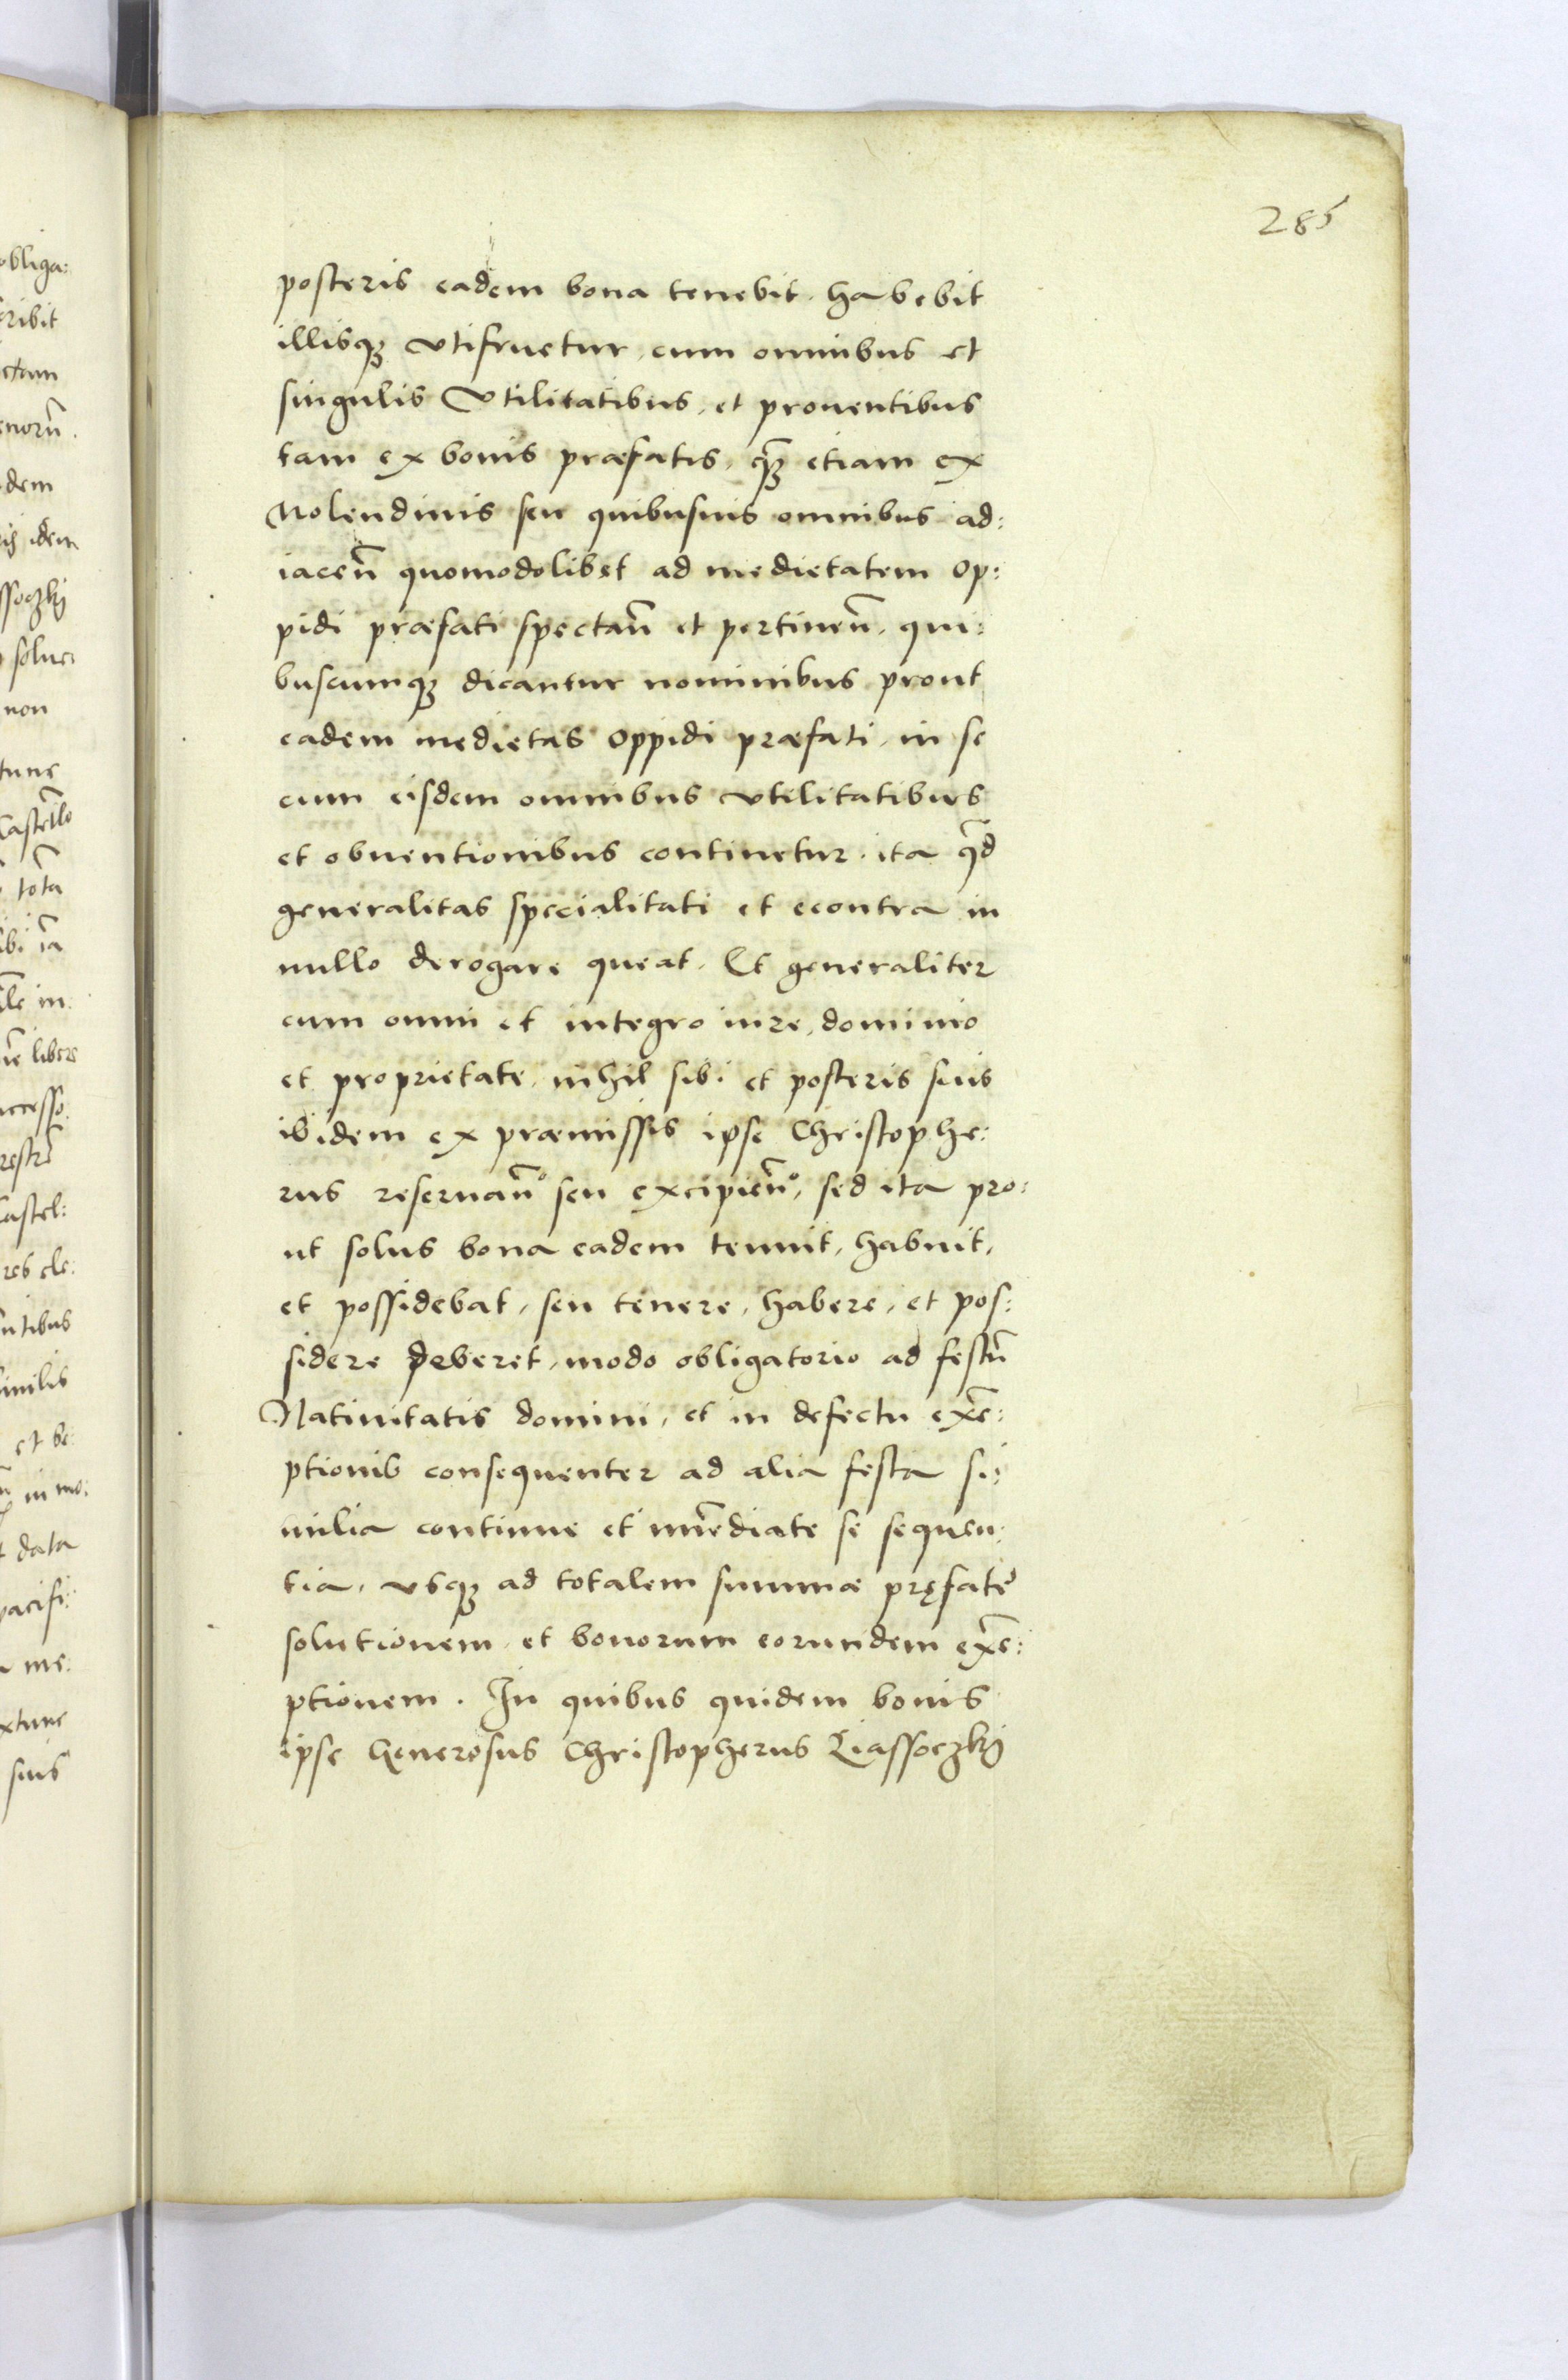 285
posteris eadem bona tenebit, habebit
illisq3 vtifruetur, cum omnibus et
singulis Vtilitatibus, et prouentibus
tam ex bonis præfatis, q̃3 etiam ex
Molendinis seu quibusuis omnibus ad:
iaceñ quomodolibet ad medietatem op:
pidi præfati spectañ et pertineñ, qui:
buscumq3 dicantur nominibus prout
eadem medietas oppidi præfati, in se
cum eisdem omnibus vtilitatibus
et obuentionibus continetur. ita q̃d
generalitas specialitati et econtra in
nullo derogare queat. Et generaliter
cum omni et integro iure, dominio
et proprietate, nihil sibi et posteris suis
ibidem ex præmissis ipse Christophe:
rus reseruañ° seu excipieñ°, sed ita pro:
ut solus bona eadem tenuit, habuit,
et possidebat, seu tenere, habere, et pos:
sidere deberet, modo obligatorio ad festũ
Natiuitatis domini, et in defectu exẽ:
ptionis consequenter ad alia festa si:
milia continue et im̃ediate se sequen:
tia, vsq3 ad totalem summæ pręfatę
solutionem et bonorum eorundem exẽ:
ptionem. In quibus quidem bonis
ipse Generosus Christopherus Liassoczkÿ
obliga:
dem
non
tunc
tota
in:
libere
Castel:
et be:
in mo:
data
me:
suis